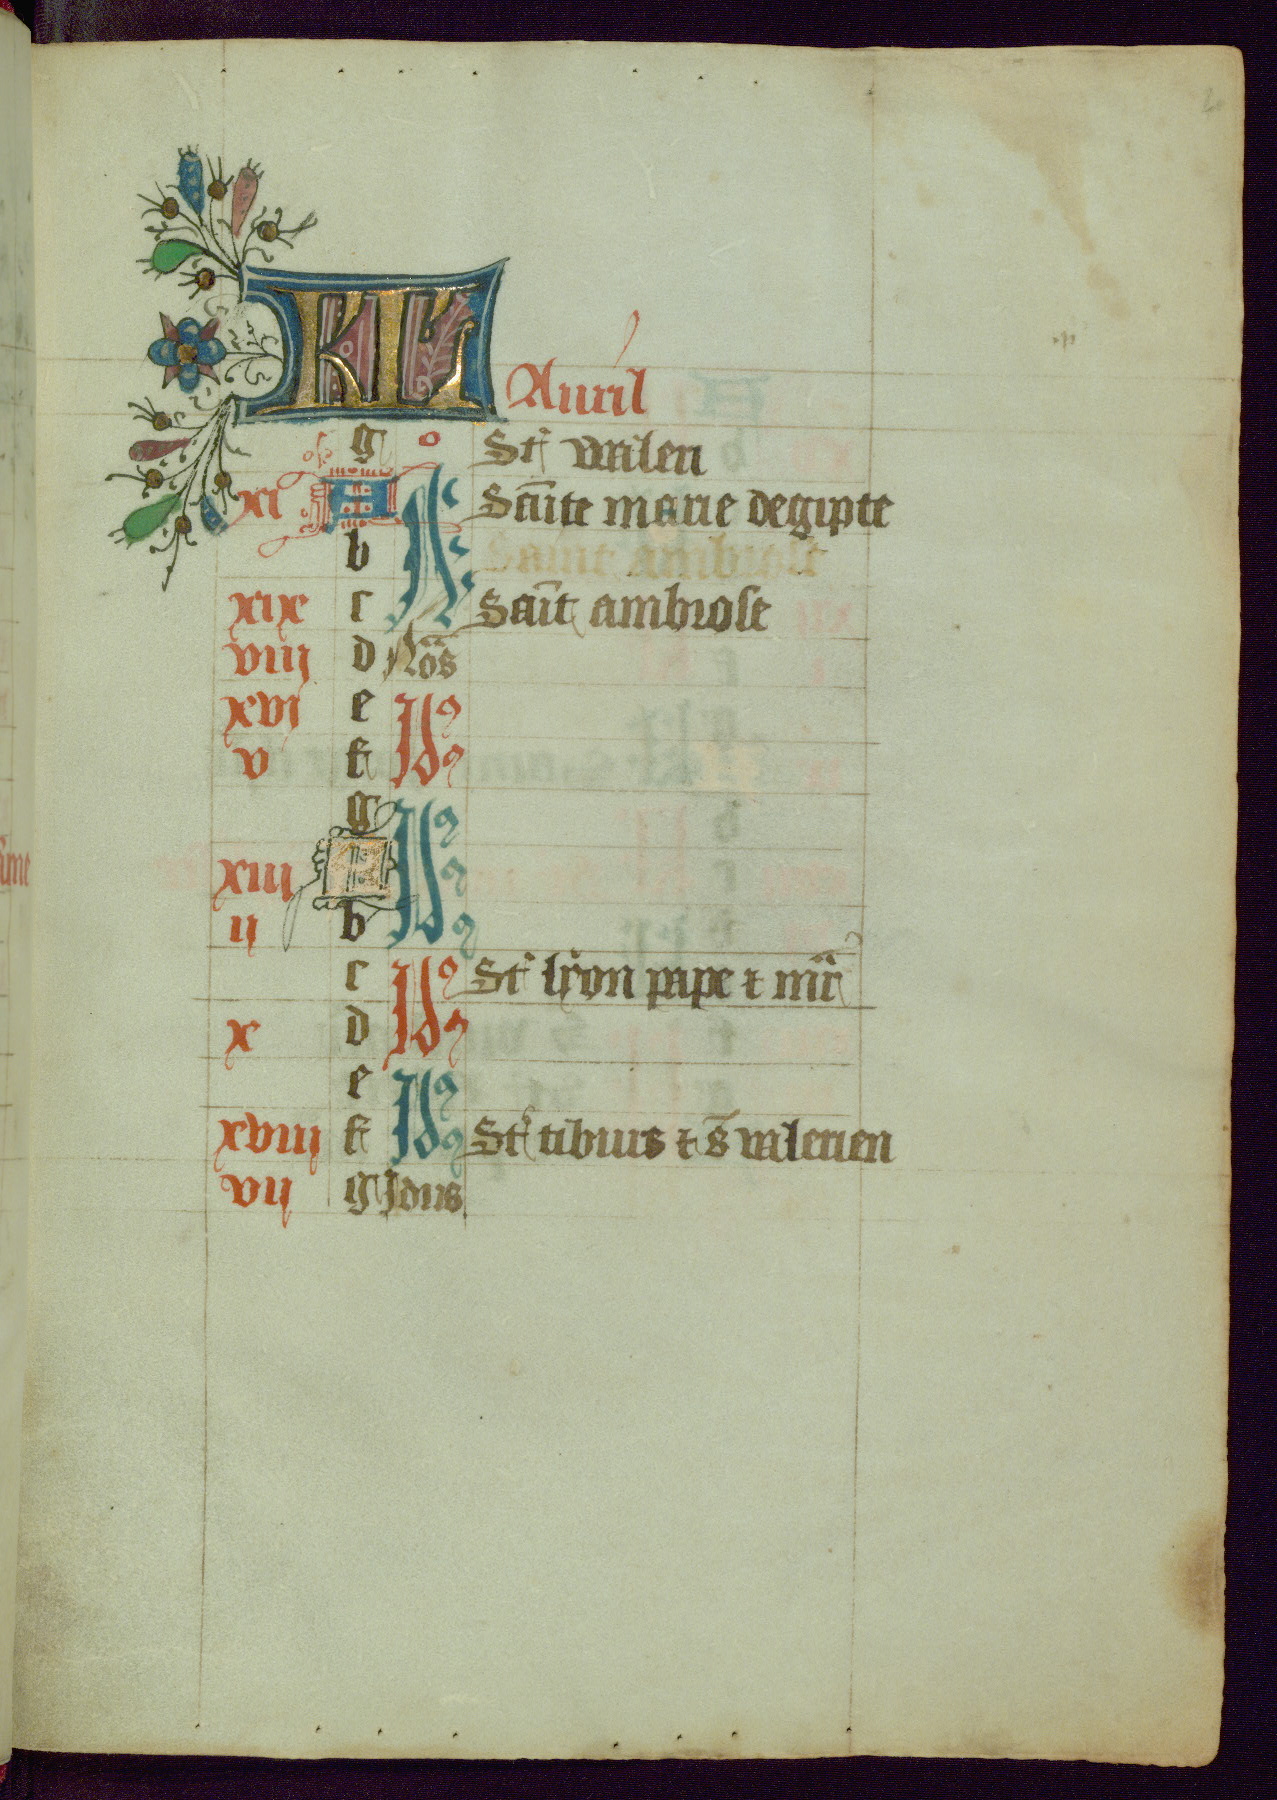 KL Auril
g St walen
xi A N Saīte marie degipte
b N Saint ambrose
xix c N Saīt ambrose
viij d Noˉs
xvj e Id
v f Id
g Id
xiij A Id
ij b Id
c Id St lyon pape ⁊ mr̄
x d Id
e Id
xviij f Id St tiburs ⁊ s̄ valerien
vij g Idus